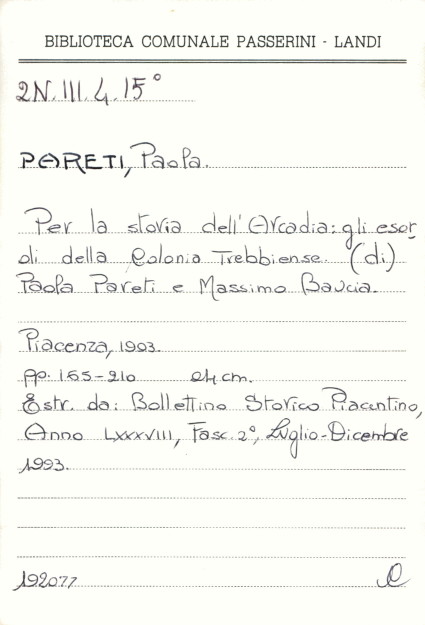 BIBLIOTECA COMUNALE PASSERINI - LANDI
2N.III.4.15°
PARETI, Paola.
Per la storia dell'Arcadia: gli esor
di della Colonia Trebbiense. (di)
Paola Pareti e Massimo Baucia.
Piacenza, 1993.
pp. 165-210 24 cm.
Estr. da: Bollettino Storico Piacentino,
Anno LXXXVIII, Fasc. 2°, Luglio-Dicembre
1993.
192077